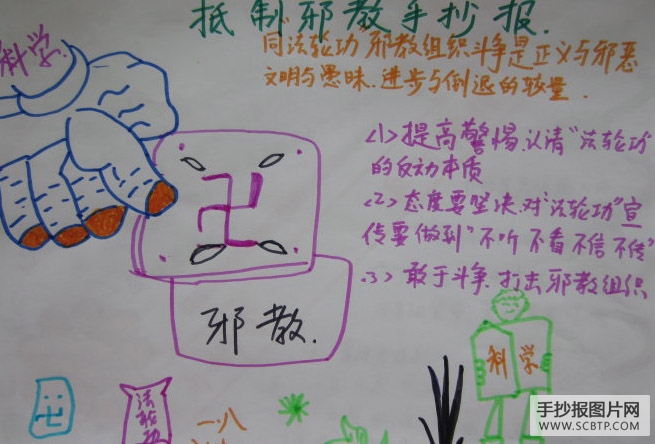 抵制邪教手抄报.
科学.
同"法轮功"邪教组织斗争是正义与邪恶
文明与愚昧.进步与倒退的较量.
<1>提高警惕.认清"法轮功
的反动本质
<2>态度要坚决.对"法轮功"宣
传要做到"不听不看不信不传"
<3>敢于斗争.打击邪教组织
卍
邪教.
科学
法轮功
一八
手抄报图片网
WWW.SCBTP.COM